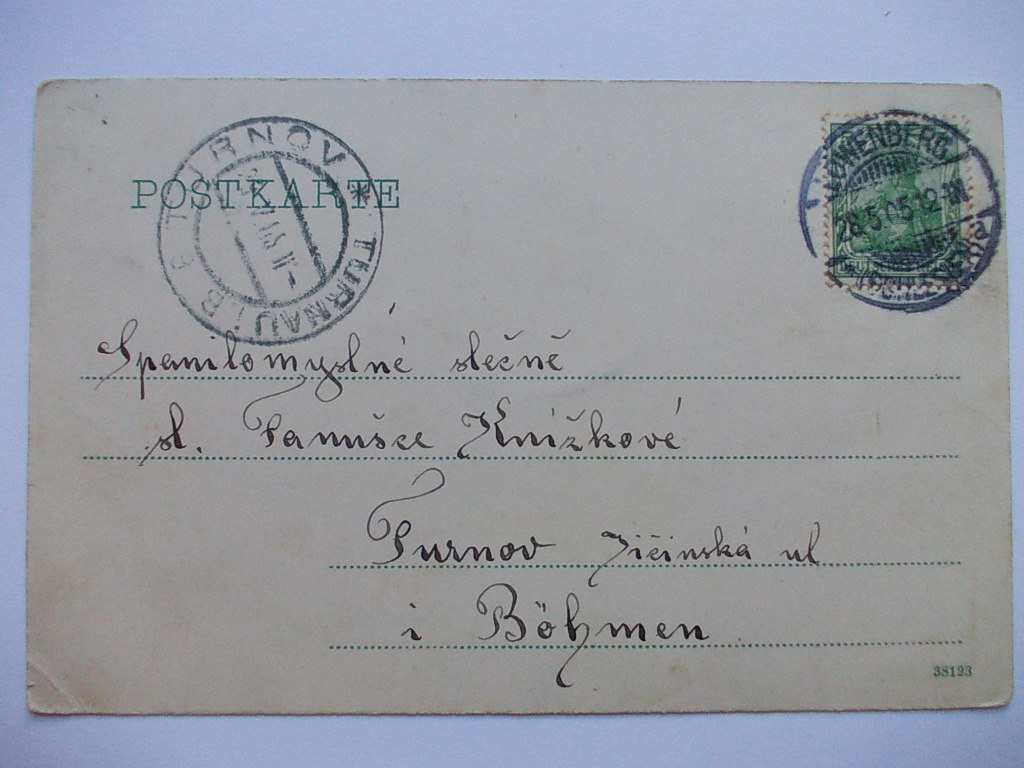 POSTKARTE
TURNOV * TURNAU i. B.
28.5.05.12-1N.
Spanilomyslné slečně
sl. Fanušce Knížkové
Turnov Jičinská ul
i Böhmen
38123